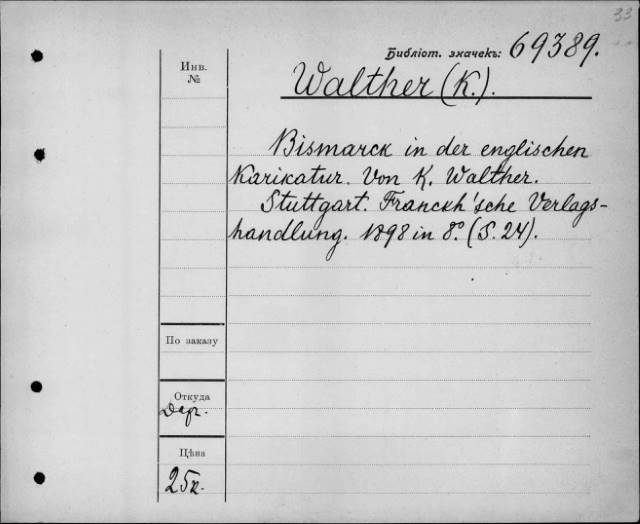 33
Библіот. значекъ: 69389.
Инв.
№
Walther (K.).
Bismarck in der englischen
Karikatur. Von K. Walther.
Stuttgart. Franckh'sche Verlags-
handlung. 1898 in 8°. (S. 24).
По заказу
Откуда
Дер.
Цѣна
25к.